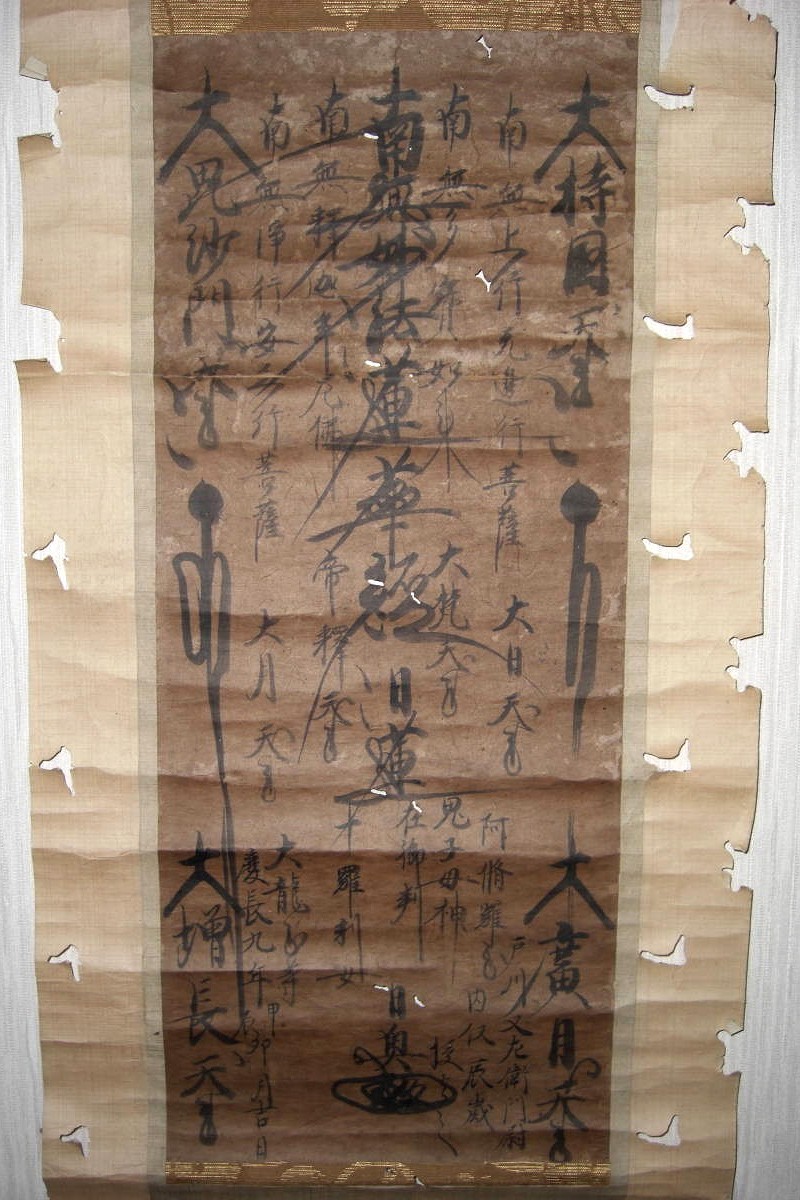 大持国天王
大廣目天王
南無上行无邊行菩薩
大日天王
阿脩羅王
戸川又左衛門尉
内仪辰歳
授之
南無多寳如来
大梵天王
鬼子母神
南無妙法蓮華經
日蓮
在御判
日奥
南無釋迦牟尼佛
帝釋天王
十羅刹女
南無淨行安立行菩薩
大月天王
大龍
慶長九年甲辰卯月吉日
大毘沙門天王
大增長天王